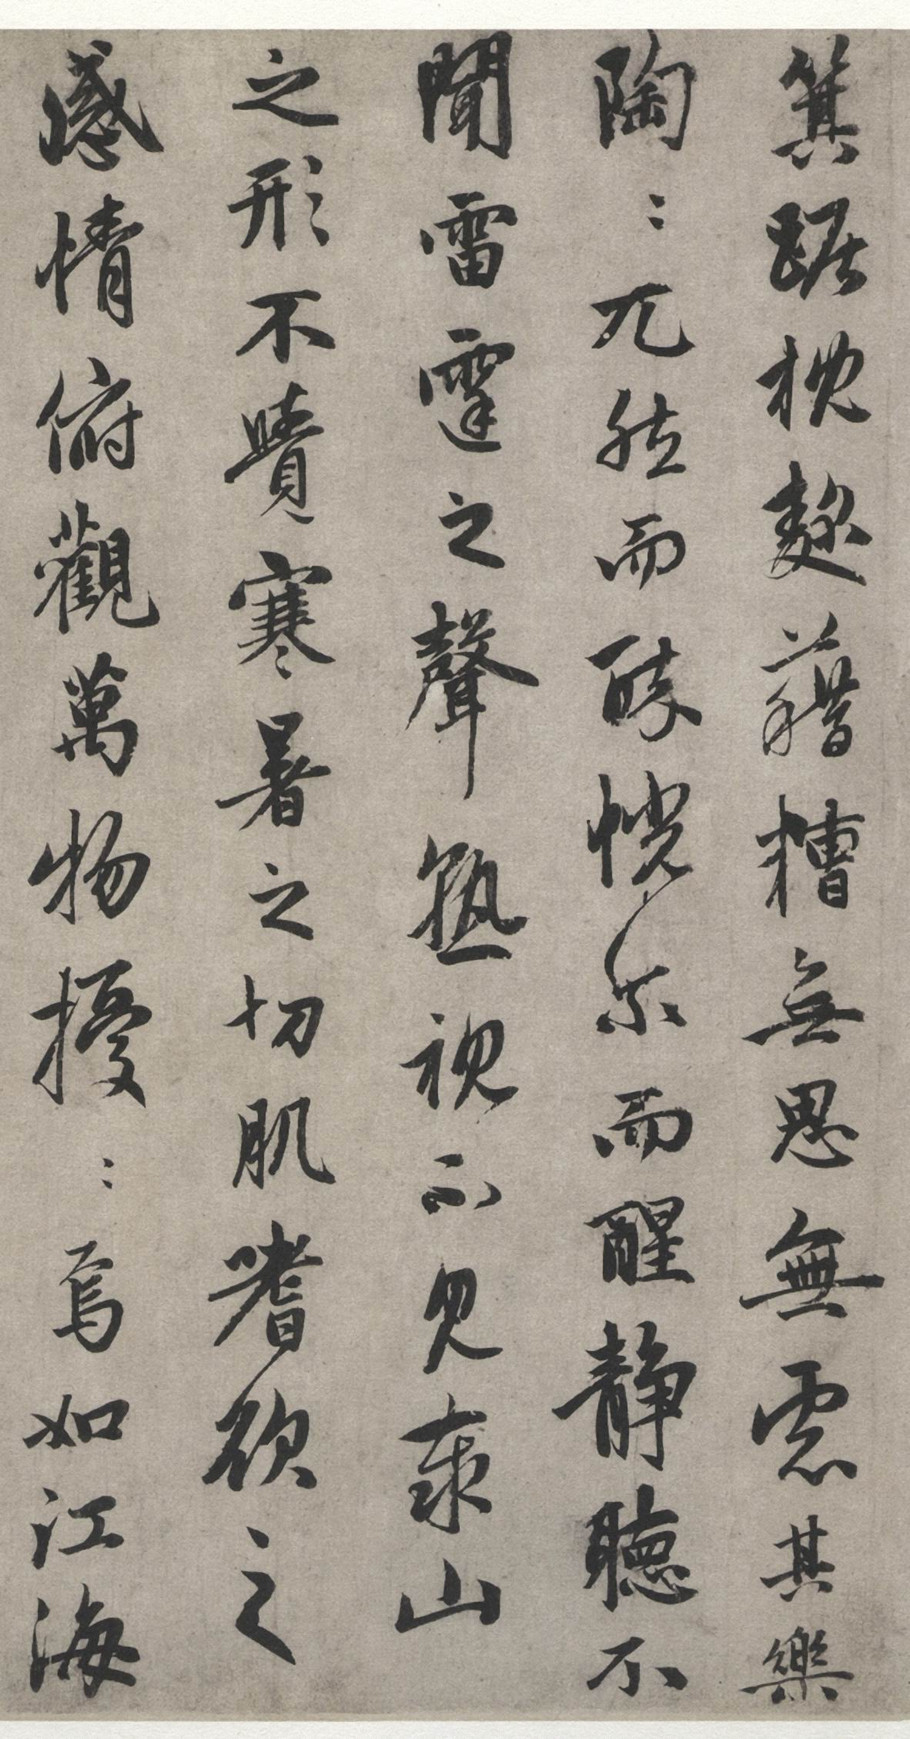 箕踞枕麴藉糟無思無慮其樂
陶：兀然而醉恍尔而醒静聽不
聞雷霆之聲熟視不見泰山
之形不覺寒暑之切肌嗜欲之
感情俯觀萬物擾：焉如江海